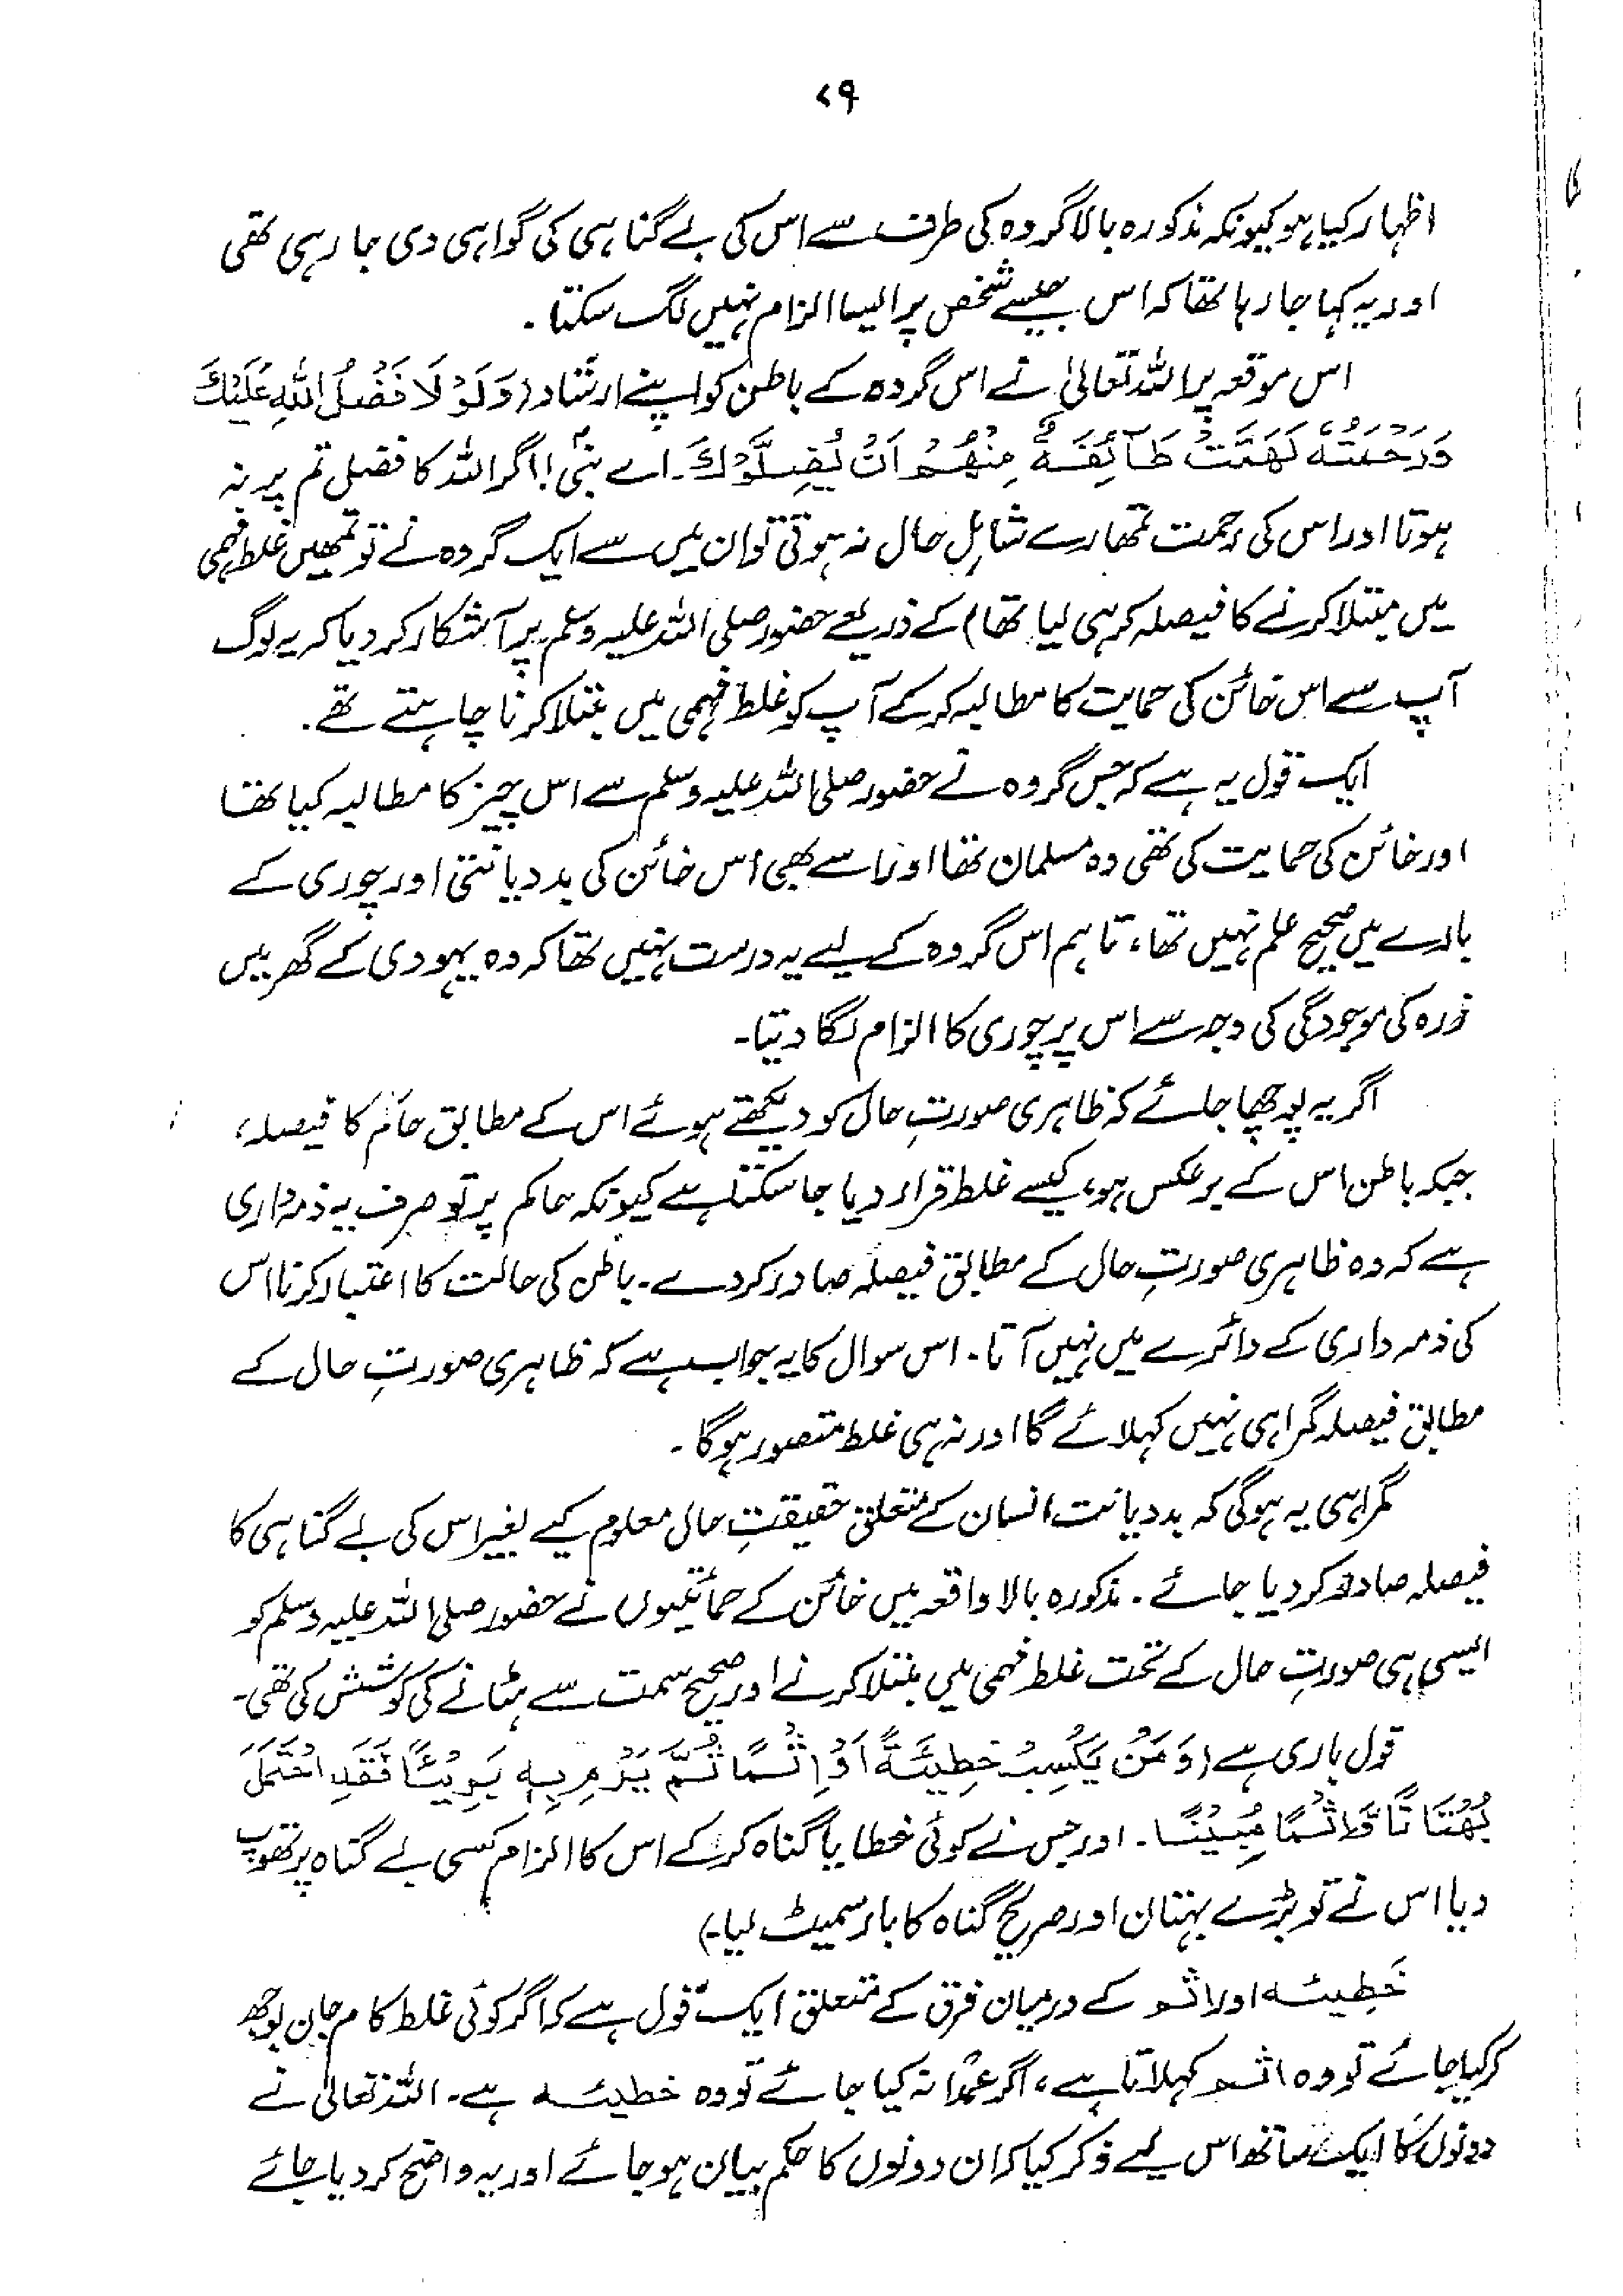 ۷۹
اظہار کیا ہو کیونکہ مذکورہ بالا گروہ کی طرف سے اس کی بے گناہی کی گواہی دی جا رہی تھی
اور یہ کہا جا رہا تھا کہ اس جیسے شخص پر ایسا الزام نہیں لگ سکتا۔
اس موقعہ پر اللہ تعالیٰ نے اس گروہ کے باطن کو اپنے ارشاد (وَلَوْ لَا فَضْلُ اللهِ عَلَيْكَ
وَرَحْمَتُهٗ لَهَمَّتْ طَآئِفَةٌ مِنْهُمْ اَنْ يُضِلُّوْكَ۔ اے نبیؐ! اگر اللہ کا فضل تم پر نہ
ہوتا اور اس کی رحمت تمھارے شاملِ حال نہ ہوتی تو ان میں سے ایک گروہ نے تو تمھیں غلط فہمی
میں مبتلا کرنے کا فیصلہ کر ہی لیا تھا) کے ذریعے حضور صلی اللہ علیہ وسلم پر آشکارا کر دیا کہ یہ لوگ
آپ سے اس خائن کی حمایت کا مطالبہ کر کے آپ کو غلط فہمی میں مبتلا کرنا چاہتے تھے۔
ایک قول یہ ہے کہ جس گروہ نے حضور صلی اللہ علیہ وسلم سے اس چیز کا مطالبہ کیا تھا
اور خائن کی حمایت کی تھی وہ مسلمان تھا اور اسے بھی اس خائن کی بددیانتی اور چوری کے
بارے میں صحیح علم نہیں تھا، تاہم اس گروہ کے لیے یہ درست نہیں تھا کہ وہ یہودی کے گھر میں
زرہ کی موجودگی کی وجہ سے اس پر چوری کا الزام لگا دیتا۔
اگر یہ پوچھا جائے کہ ظاہری صورتِ حال کو دیکھتے ہوئے اس کے مطابق حاکم کا فیصلہ،
جبکہ باطن اس کے برعکس ہو، کیسے غلط قرار دیا جا سکتا ہے کیونکہ حاکم پر تو صرف یہ ذمہ داری
ہے کہ وہ ظاہری صورتِ حال کے مطابق فیصلہ صادر کر دے۔ باطن کی حالت کا اعتبار کرنا اس
کی ذمہ داری کے دائرے میں نہیں آتا۔ اس سوال کا یہ جواب ہے کہ ظاہری صورتِ حال کے
مطابق فیصلہ گمراہی نہیں کہلائے گا اور نہ ہی غلط متصور ہوگا۔
گمراہی یہ ہوگی کہ بددیانت انسان کے متعلق حقیقتِ حال معلوم کیے بغیر اس کی بے گناہی کا
فیصلہ صادر کر دیا جائے۔ مذکورہ بالا واقعہ میں خائن کے حمائتیوں نے حضور صلی اللہ علیہ وسلم کو
ایسی ہی صورتِ حال کے تحت غلط فہمی میں مبتلا کرنے اور صحیح سمت سے ہٹانے کی کوشش کی تھی۔
قول باری ہے (وَمَنْ يَكْسِبْ خَطِيْئَةً اَوْ اِثْمًا ثُمَّ يَرْمِ بِهٖ بَرِيْئًا فَقَدِ احْتَمَلَ
بُهْتَانًا وَّاِثْمًا مُبِيْنًا۔ اور جس نے کوئی خطا یا گناہ کر کے اس کا الزام کسی بے گناہ پر تھوپ
دیا اس نے تو بڑے بہتان اور صریح گناہ کا بار سمیٹ لیا۔)
خَطِيئه اور اثم کے درمیان فرق کے متعلق ایک قول ہے کہ اگر کوئی غلط کام جان بوجھ
کر کیا جائے تو وہ اثم کہلاتا ہے، اگر عمداً نہ کیا جائے تو وہ خطیئہ ہے۔ اللہ تعالیٰ نے
دونوں کا ایک ساتھ اس لیے ذکر کیا کہ ان دونوں کا حکم بیان ہو جائے اور یہ واضح کر دیا جائے